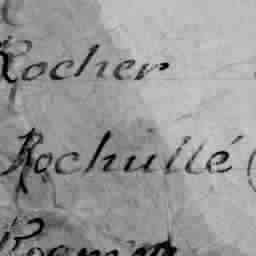 Rocher
Rochullé (